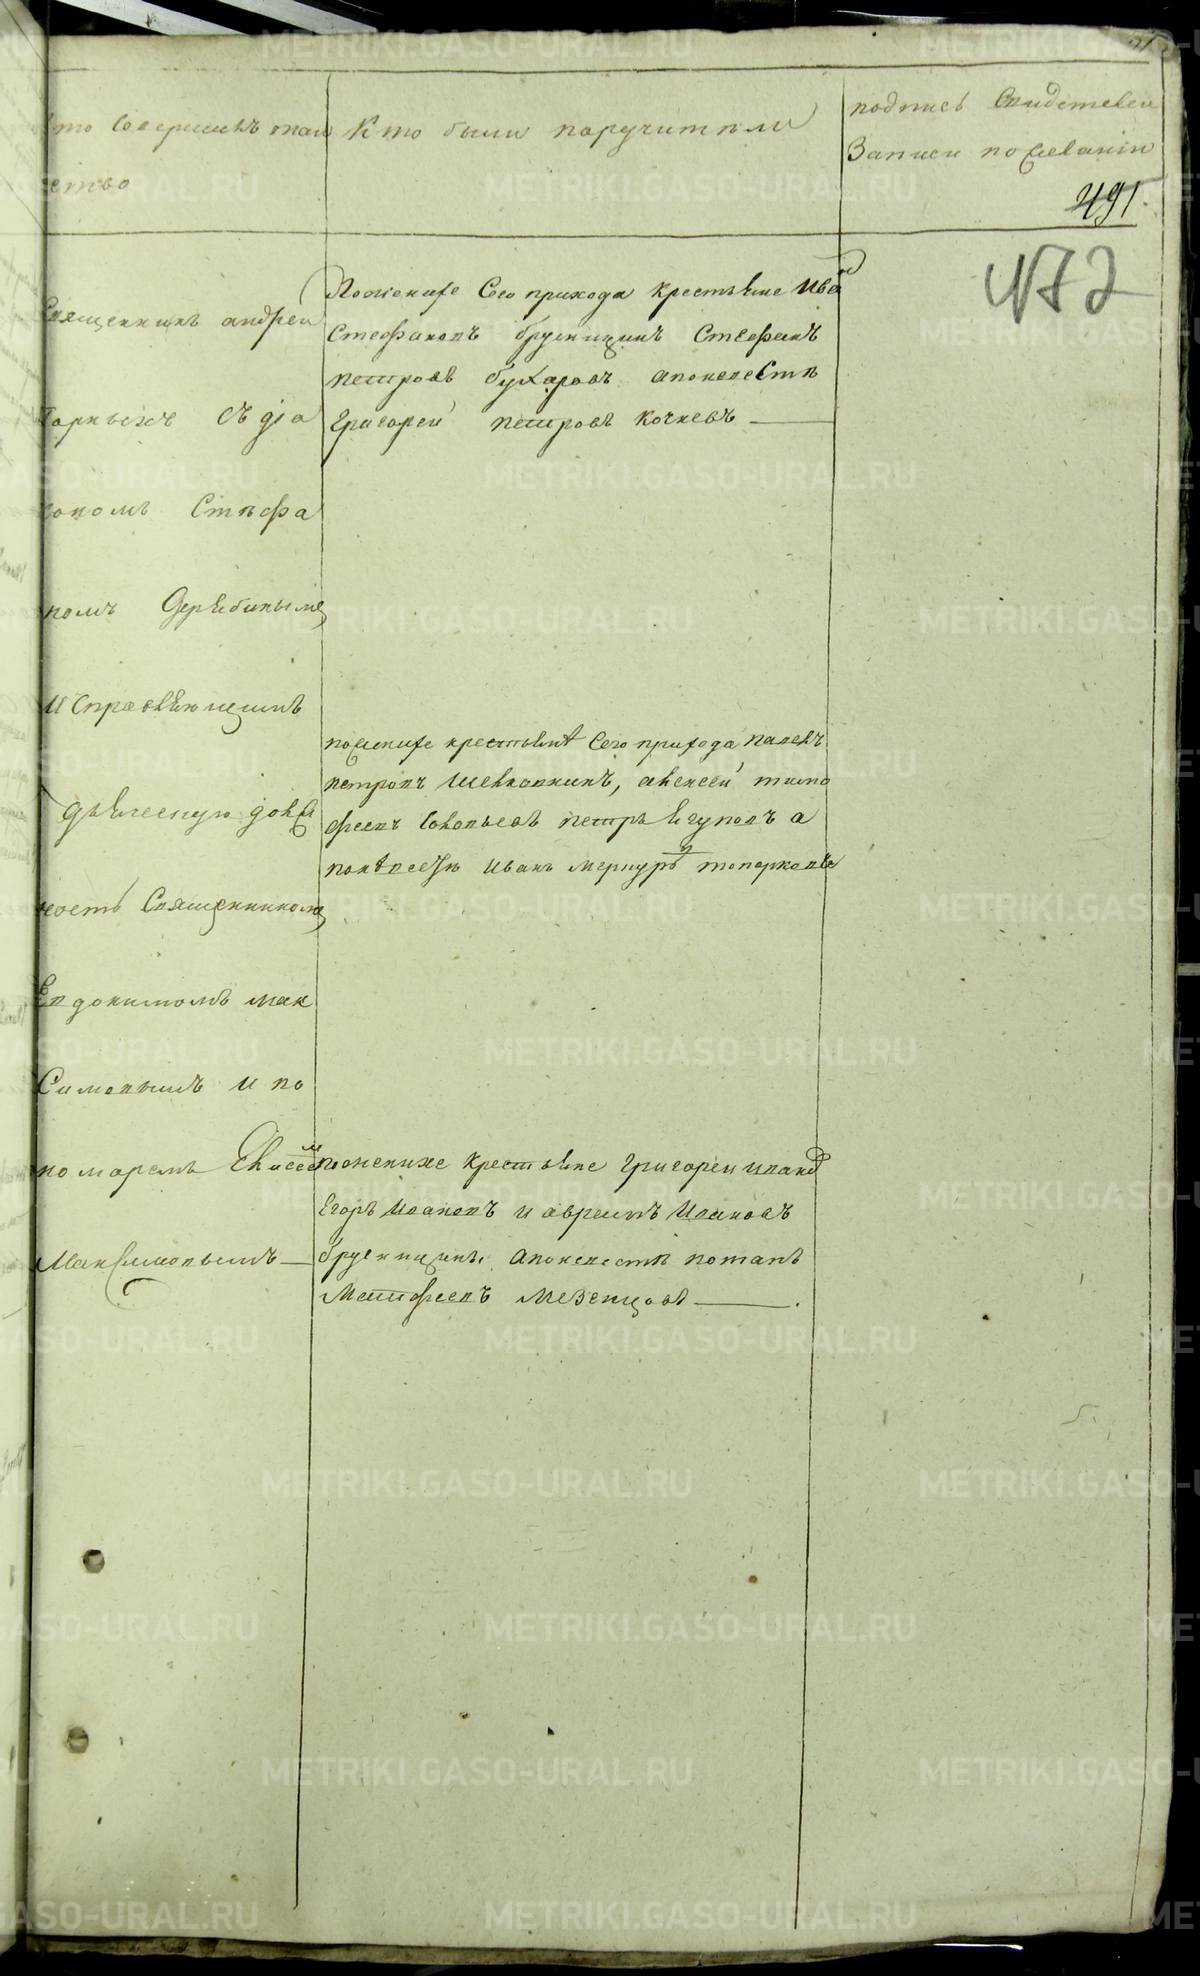 Кто совершилъ таин
ство
Кто были поручители
подпись Свидетелей
Записи по желанiю
491.
472
Священникъ андреи
Горныхъ съ дiа
кономъ Стефа
номъ Дерябинымъ
и справляющимъ
дьяческую долж
ность Священникомъ
Евдокимомъ мак
Симовымъ и по
номаремъ Елисеемъ
Максимовымъ
По женихе Сего прихода крестьяне Иванъ
Стефановъ брусницинъ Стефанъ
петровъ бухаровъ а по невесте
Григорей петровъ Кочневъ
по женихе крестьяне Сего прихода павелъ
петровъ Шевковкинъ, алексей тимо
феевъ Соловьевъ петръ Ягуповъ а
по невесте Иванъ меркурьевъ топорковъ
по женихе крестьяне Григореи ивановъ
Егоръ Ивановъ и авраамъ Ивановъ
брусницины а по невесте потапъ
Матфеевъ Мезенцовъ
METRIKI.GASO-URAL.RU